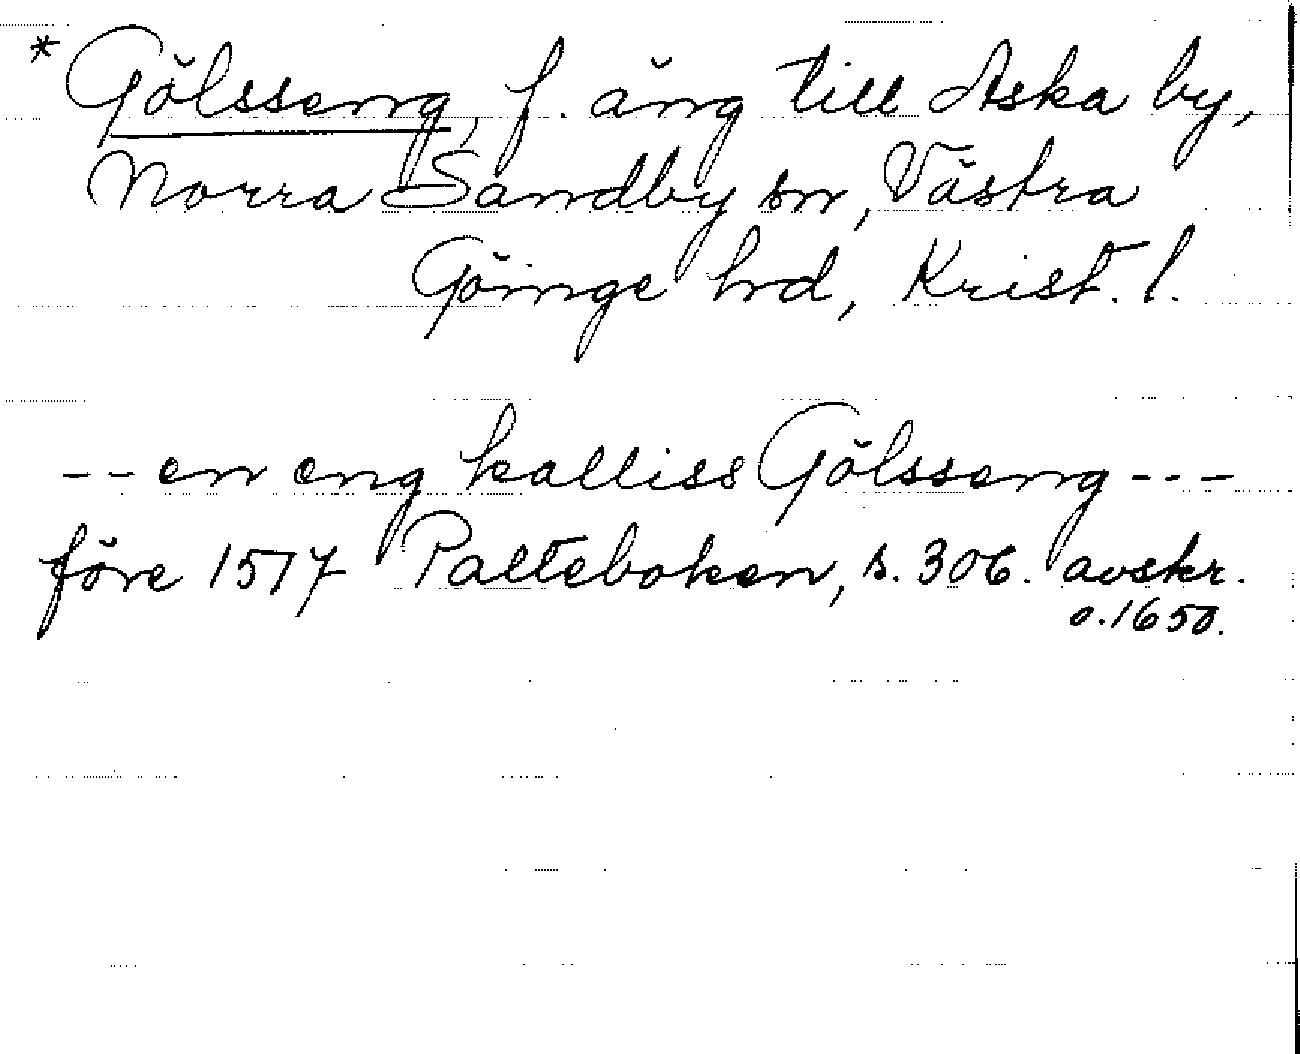 * Gölsseng, f. äng till Aska by,
Norra Sandby sn, Västra
Göinge hrd, Krist. l.
-- en eng kalliss Gölsseng ---
före 1517 Palteboken, s. 306. avskr.
o. 1650.